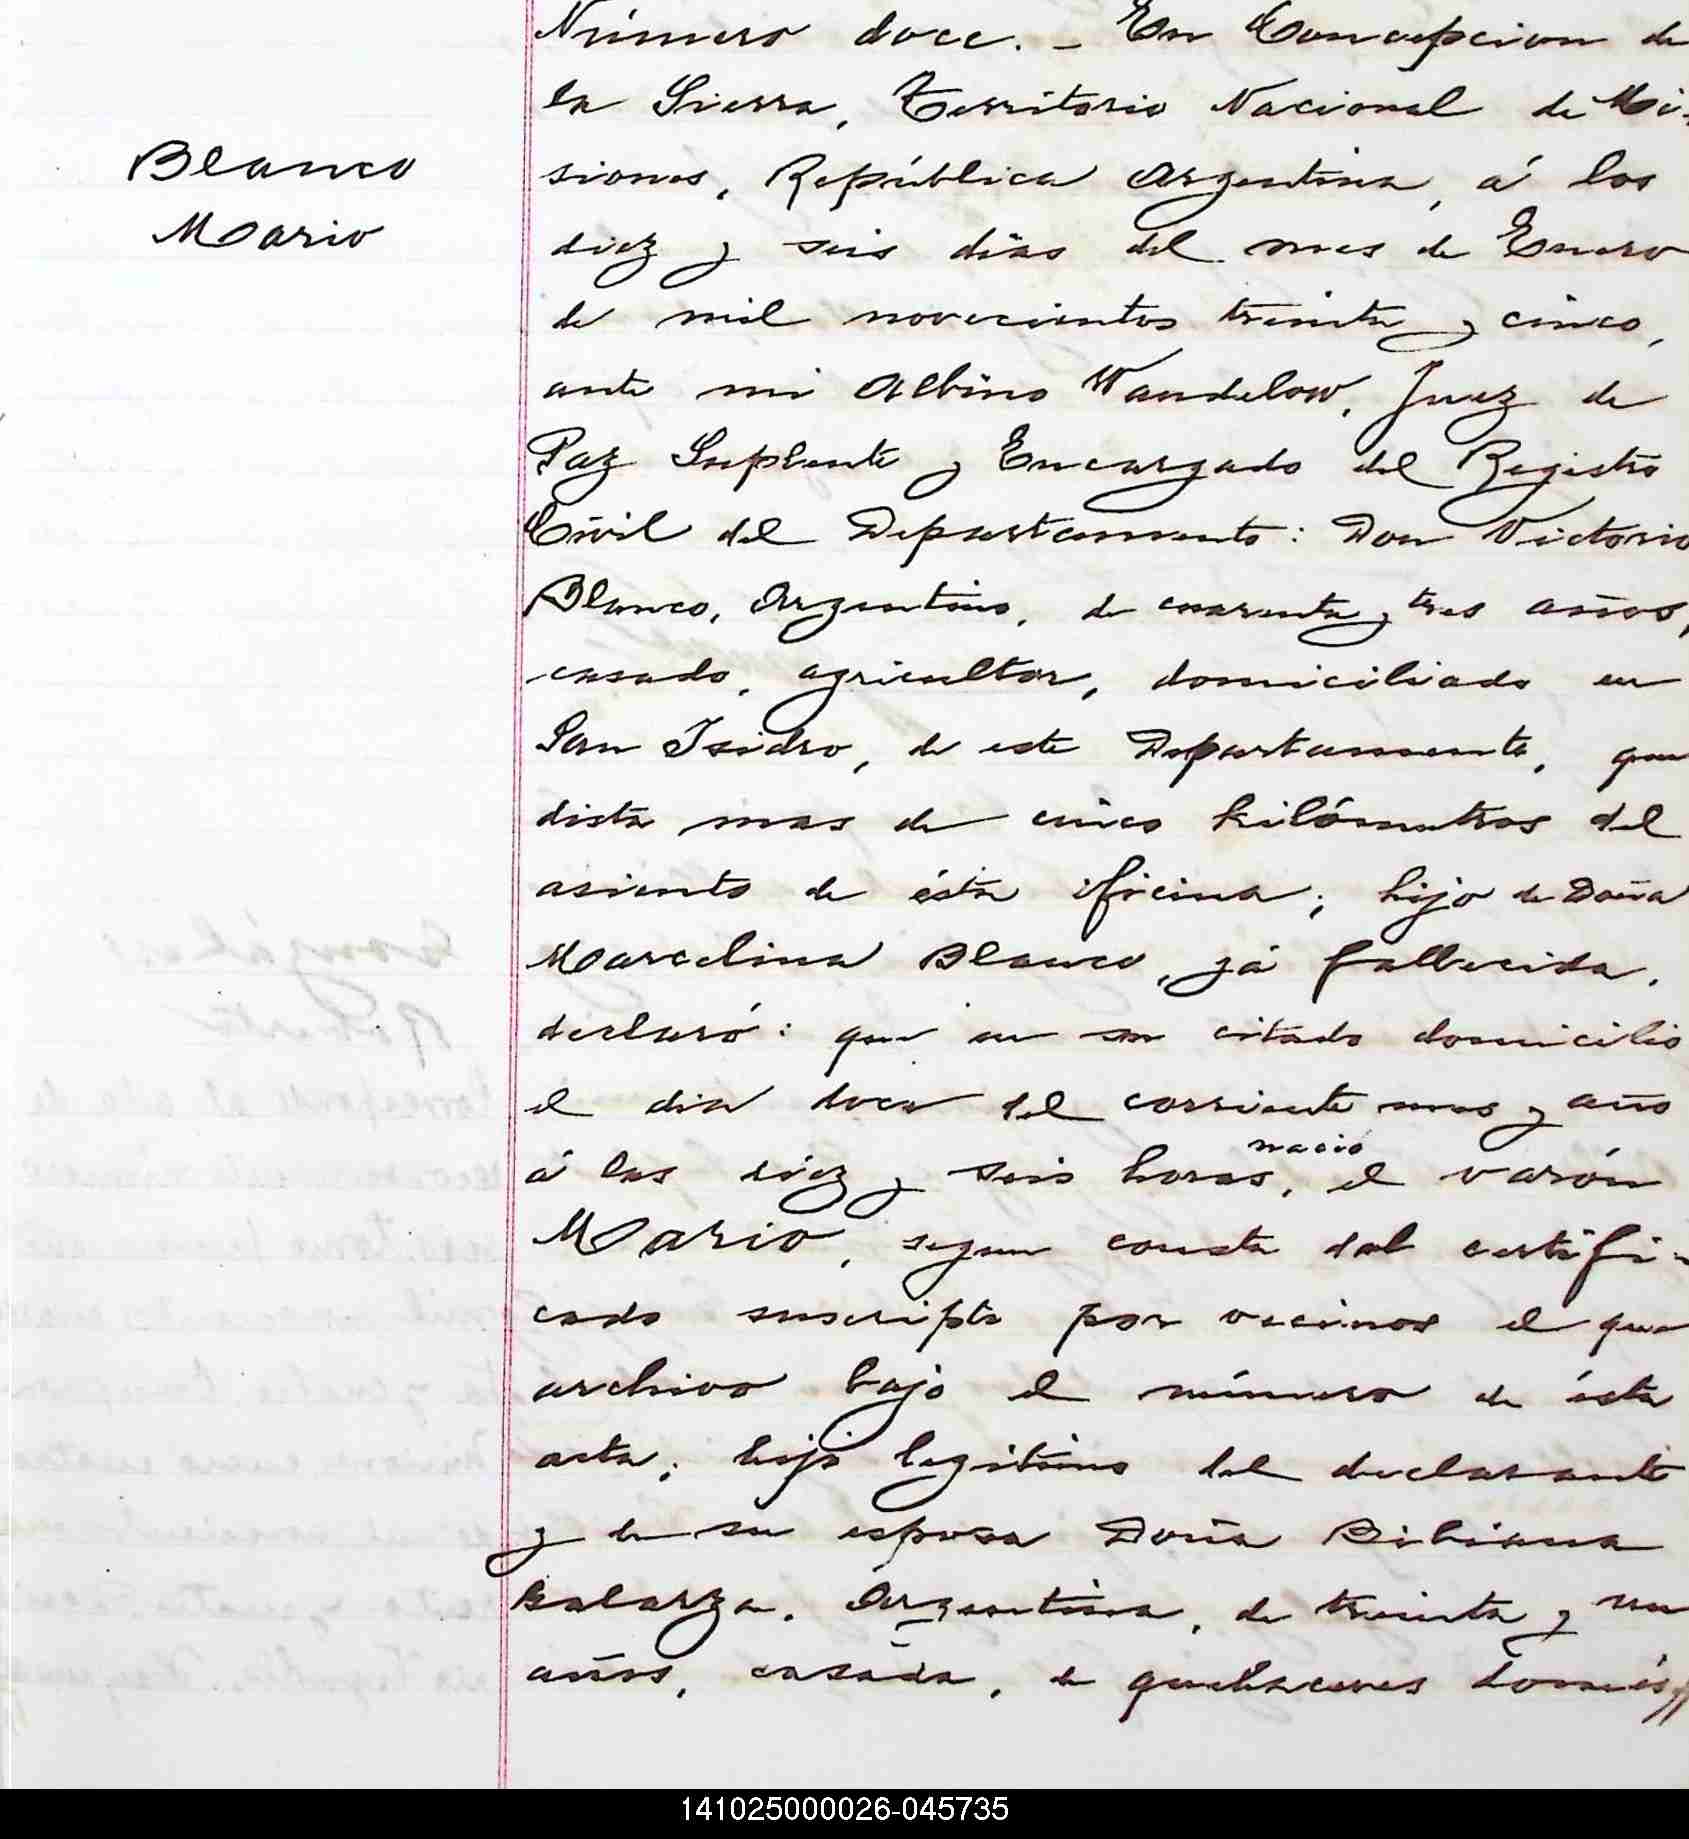 Blanco
Mario
Número doce. - En Concepcion de
la Sierra, Territorio Nacional de Mi-
siones, República Argentina, á los
diez y seis dias del mes de Enero
de mil novecientos treinta y cinco,
ante mi Albino Wandelow, Juez de
Paz Suplente y Encargado del Registro
Civil del Departamento: Don Victorio
Blanco, Argentino, de cuarenta y tres años,
casado, agricultor, domiciliado en
San Isidro, de este Departamento, que
dista mas de cinco kilómetros del
asiento de ésta oficina; hijo de Doña
Marcelina Blanco, yá fallecida,
declaró: que en su citado domicilio
el dia doce del corriente mes y año
á las diez y seis horas, nació el varón
Mario, segun consta del certifi-
cado suscripto por vecinos el que
archivo bajo el número de ésta
acta; hijo legitimo del declarante
y de su esposa Doña Bibiana
Galarza, Argentina, de treinta y un
años, casada, de quehaceres domés//
141025000026-045735